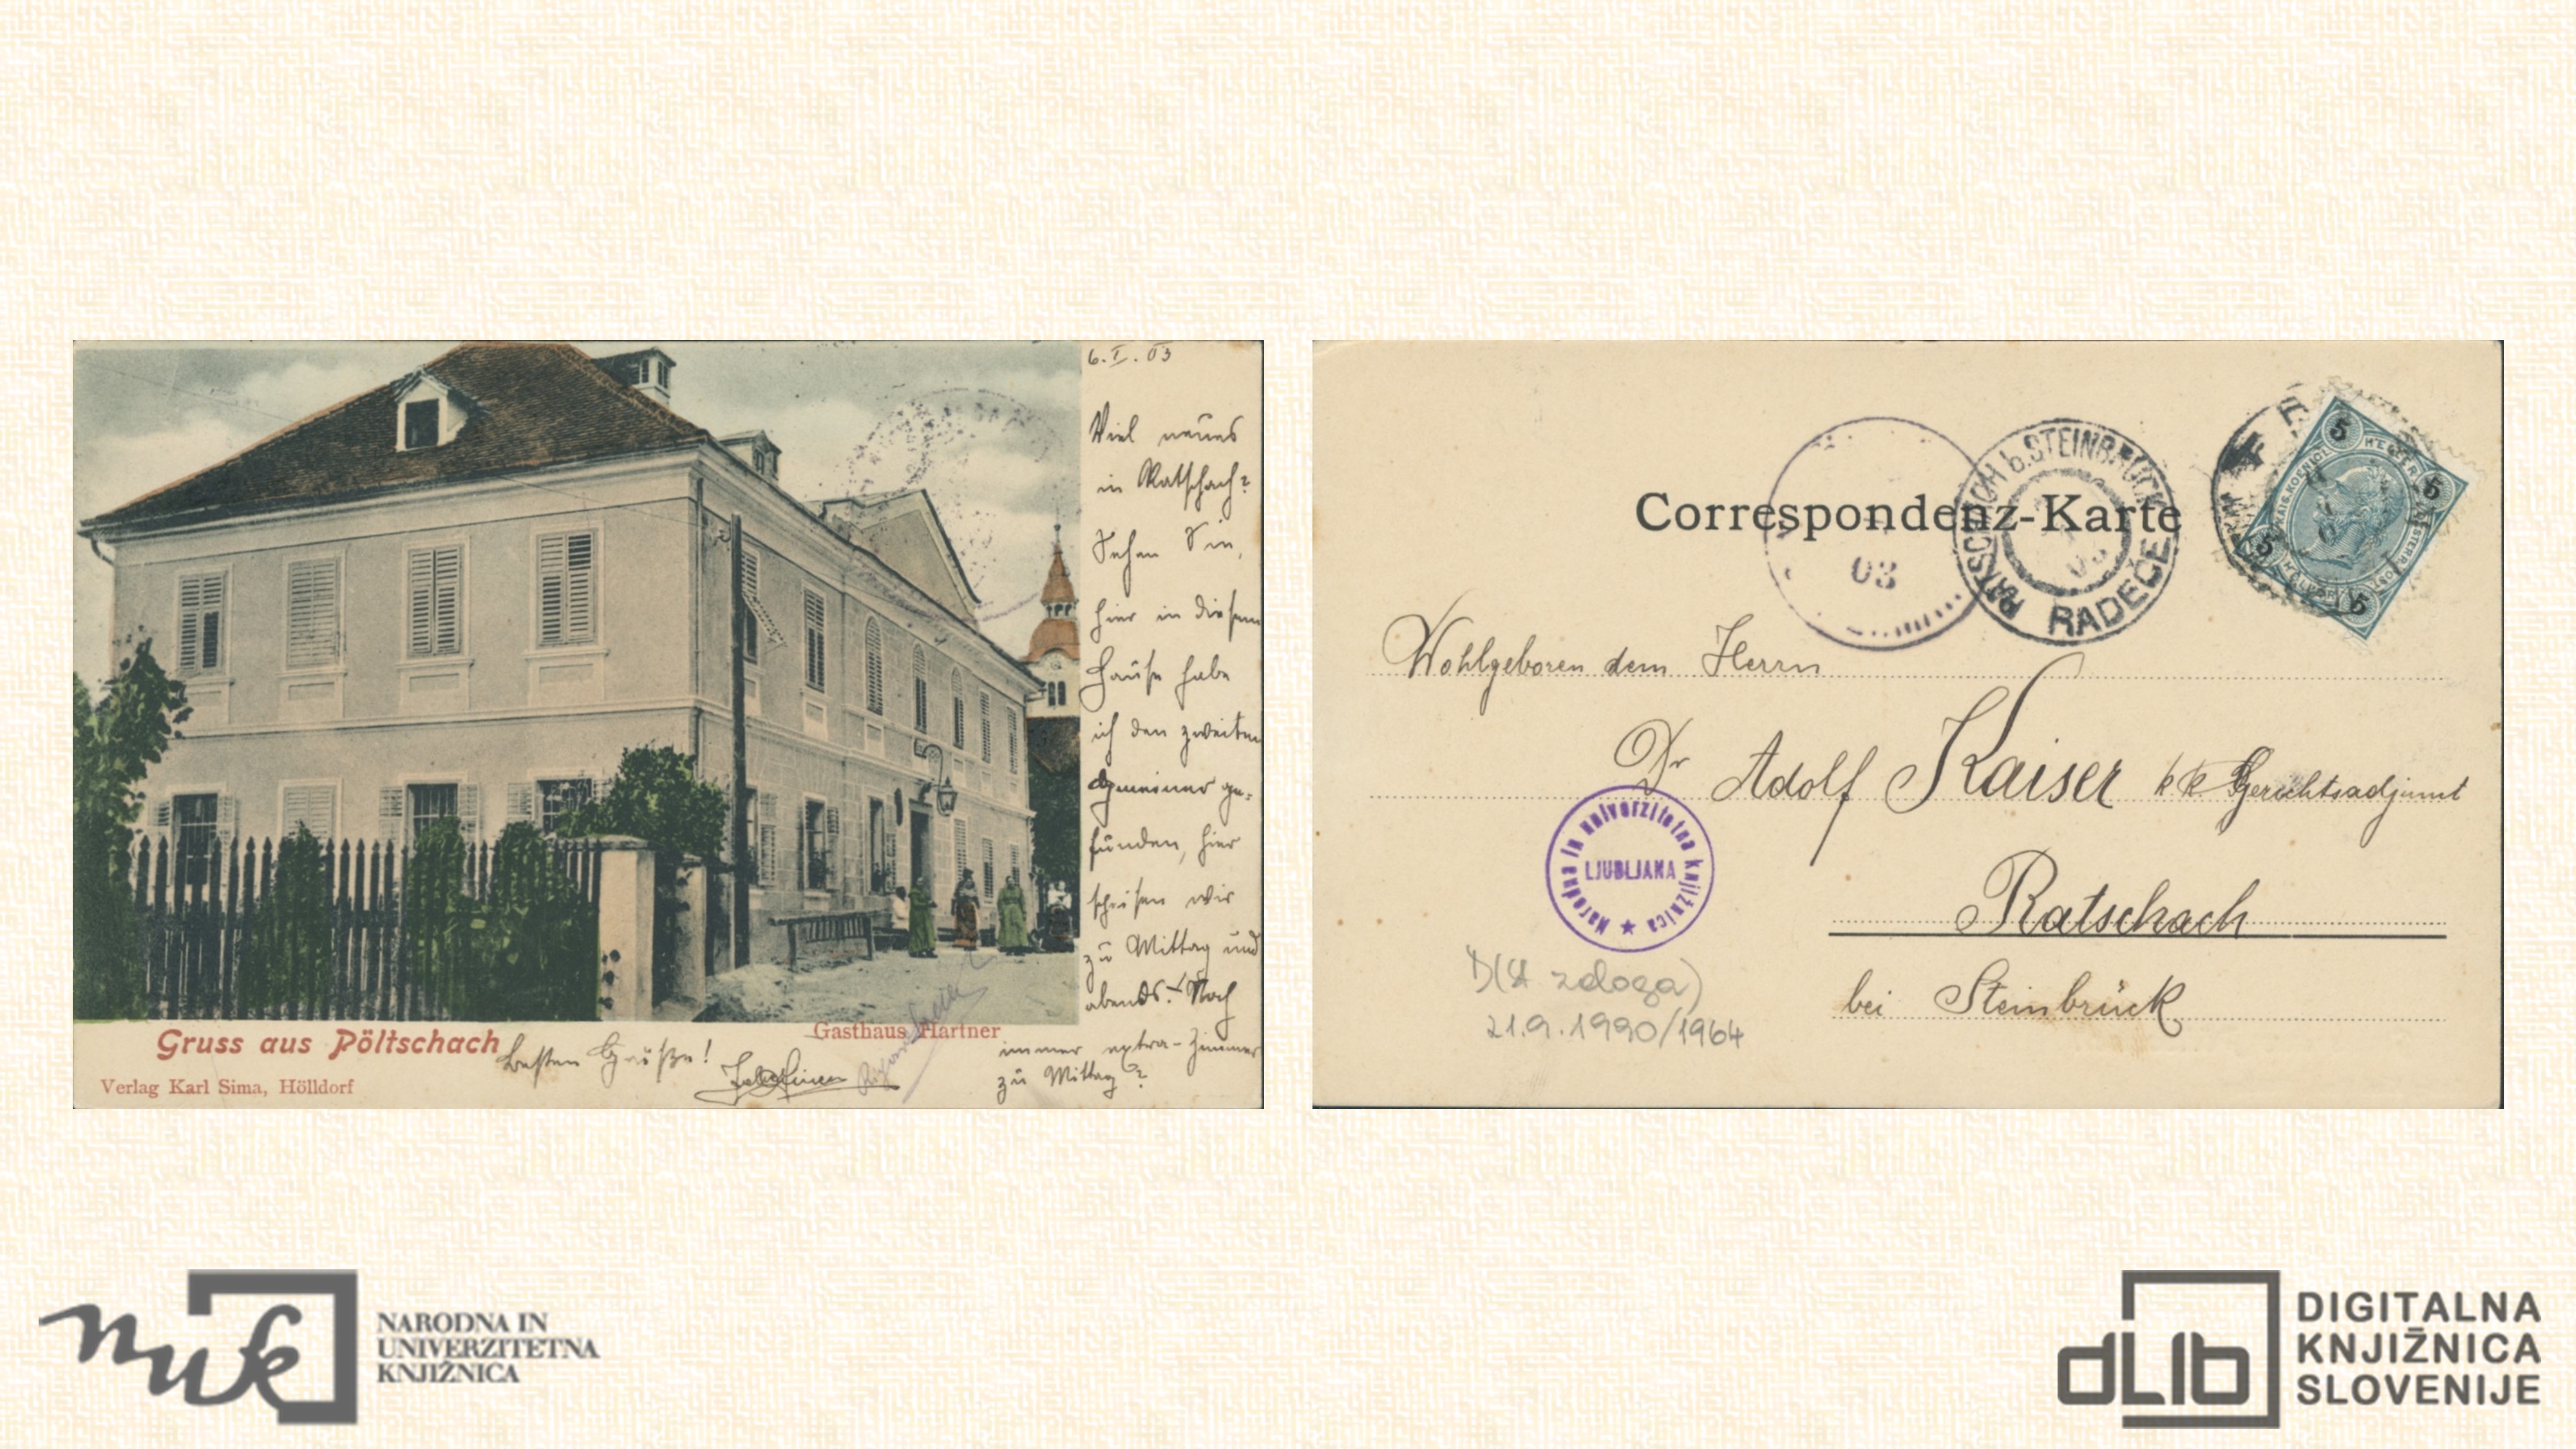 6. I. 03
Viel neues
in Ratschach?
Sehen Sie,
hier in diesem
Hause habe
ich den zweiten
gefunden, hier
speisen wir
zu Mittag und
abends. Noch
immer extra-Zimmer
zu Mittag?
Gruss aus Pöltschach
Besten Grüße!
Gasthaus Hartner
Verlag Karl Sima, Hölldorf
Correspondenz-Karte
RATSCHACH b. STEINBRÜCK
RADEČE
03
5 5 5 5
Wohlgeboren dem Herrn
Dr Adolf Kaiser k k Gerichtsadjunct
Ratschach
bei Steinbrück
Narodna in univerzitetna knjižnica
LJUBLJANA
D(4 zaloga)
21.9.1990/1964
nuk
NARODNA IN
UNIVERZITETNA
KNJIŽNICA
dLib
DIGITALNA
KNJIŽNICA
SLOVENIJE